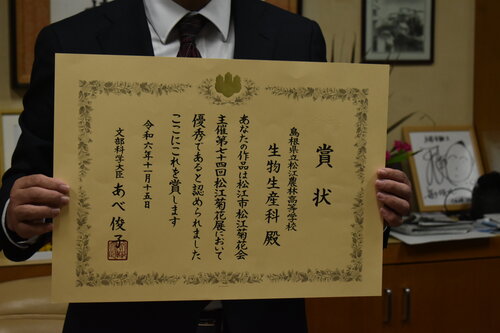 賞状
島根県立松江農林高等学校
生物生産科 殿
あなたの作品は松江市松江菊花会
主催第七十四回松江菊花展において
優秀であると認められました
ここにこれを賞します
令和六年十一月十五日
文部科学大臣 あべ 俊子